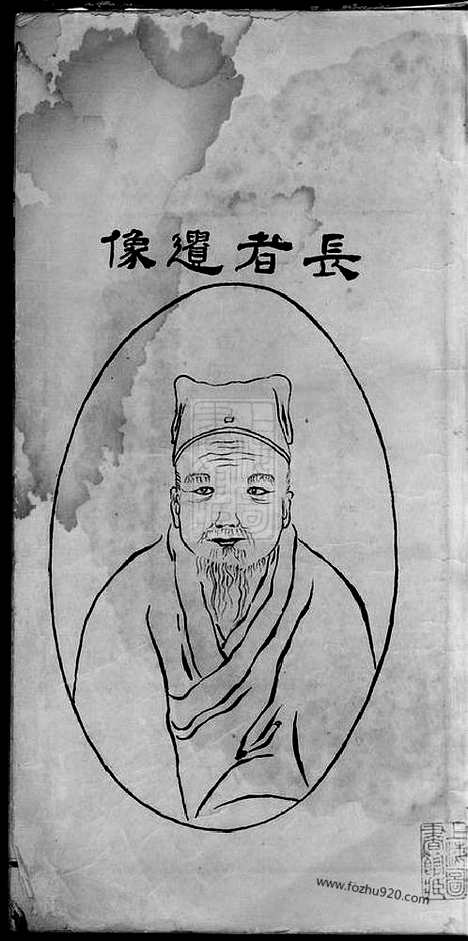 長者遺像
www.fozhu920.com